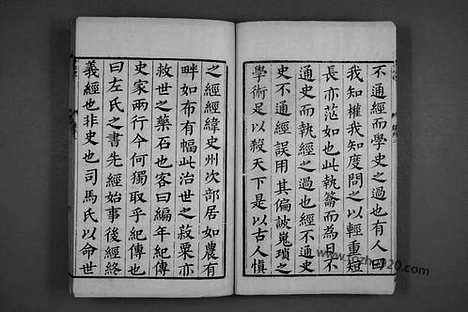 不通經而學史之過也有人曰
我知權我知度問之以輕重短
長亦茫如也此執籥而為日不
通史而執經之過也經不通史
史不通經誤用其偏詖嵬瑣之
學術足以殺天下是以古人慎
之經經緯史州次部居如農有
畔如布有幅此治世之菽粟亦
救世之藥石也客曰編年紀傳
史家兩行今何獨取乎紀傳也
曰左氏之書先經始事後經終
義經也非史也司馬氏以命世